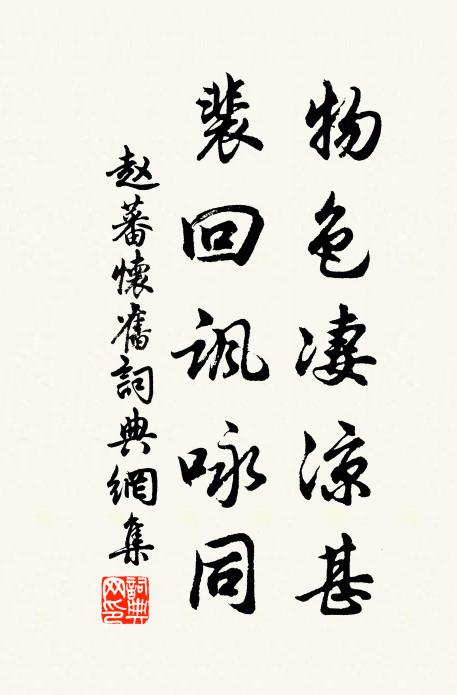 物色凄凉甚
裴回讽咏同
赵蕃懷舊詞典網集
詞典网印